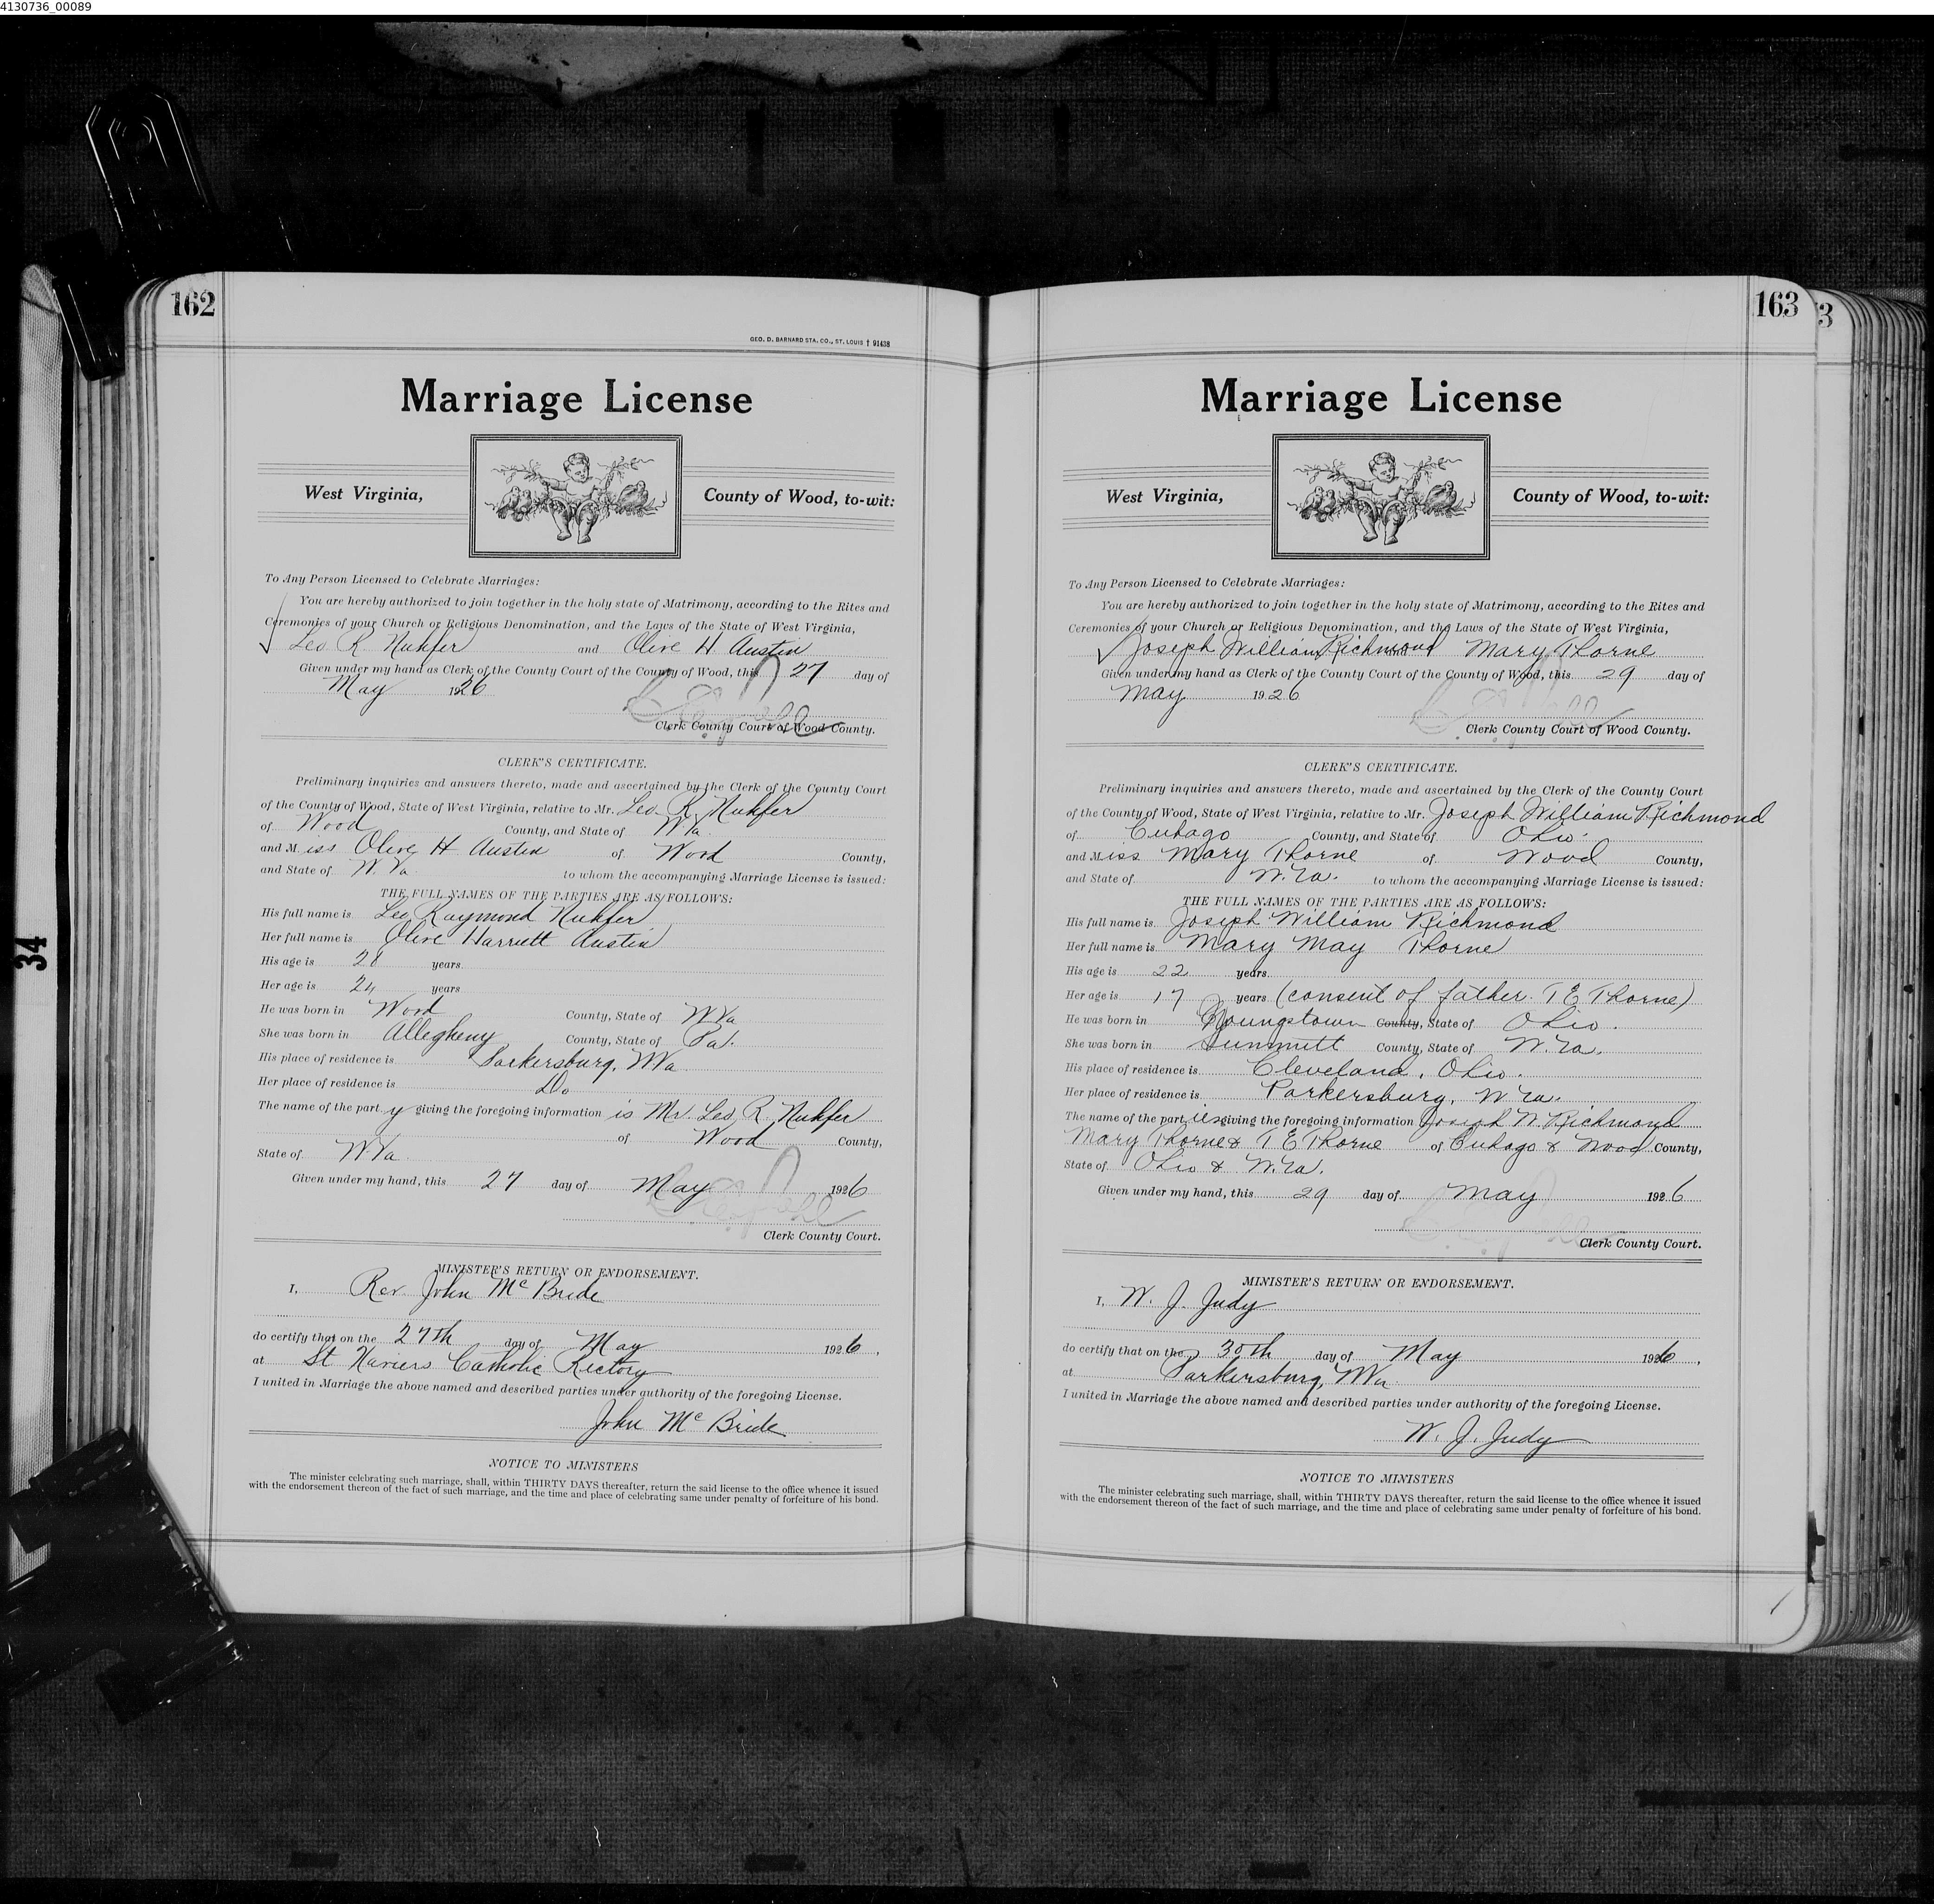 4130736_00089
34
162
GEO. D. BARNARD STA. CO., ST. LOUIS † 91438
Marriage License
West Virginia, County of Wood, to-wit:
To Any Person Licensed to Celebrate Marriages:
You are hereby authorized to join together in the holy state of Matrimony, according to the Rites and
Ceremonies of your Church or Religious Denomination, and the Laws of the State of West Virginia,
Leo R. Nuhfer and Olive H Austin
Given under my hand as Clerk of the County Court of the County of Wood, this 27 day of
May 1926
Clerk County Court of Wood County.
CLERK'S CERTIFICATE.
Preliminary inquiries and answers thereto, made and ascertained by the Clerk of the County Court
of the County of Wood, State of West Virginia, relative to Mr. Leo. R. Nuhfer
of Wood County, and State of W.Va.
and Miss Olive H Austin of Wood County,
and State of W. Va to whom the accompanying Marriage License is issued:
THE FULL NAMES OF THE PARTIES ARE AS FOLLOWS:
His full name is Leo Raymond Nuhfer
Her full name is Olive Harriett Austin
His age is years
Her age is 24 years
He was born in Wood County, State of W Va
She was born in Allegheny County, State of Pa.
His place of residence is Parkersburg, W Va
Her place of residence is Do
The name of the party giving the foregoing information is Mr. Leo R. Nuhfer
of Wood County,
State of W. Va.
Given under my hand, this 27 day of May 1926
Clerk County Court.
MINISTER'S RETURN OR ENDORSEMENT.
I, Rev John McBride
do certify that on the 27th day of May 1926,
at St Xaviers Catholic Rectory
I united in Marriage the above named and described parties under authority of the foregoing License.
John McBride
NOTICE TO MINISTERS
The minister celebrating such marriage, shall, within THIRTY DAYS thereafter, return the said license to the office whence it issued
with the endorsement thereon of the fact of such marriage, and the time and place of celebrating same under penalty of forfeiture of his bond.
163
3
Marriage License
West Virginia, County of Wood, to-wit:
To Any Person Licensed to Celebrate Marriages:
You are hereby authorized to join together in the holy state of Matrimony, according to the Rites and
Ceremonies of your Church or Religious Denomination, and the Laws of the State of West Virginia,
Joseph William Richmond and Mary Thorne
Given under my hand as Clerk of the County Court of the County of Wood, this 29 day of
May 1926
Clerk County Court of Wood County.
CLERK'S CERTIFICATE.
Preliminary inquiries and answers thereto, made and ascertained by the Clerk of the County Court
of the County of Wood, State of West Virginia, relative to Mr. Joseph William Richmond
of Cuhago County, and State of Ohio.
and Miss Mary Thorne of Wood County,
and State of W. Va. to whom the accompanying Marriage License is issued:
THE FULL NAMES OF THE PARTIES ARE AS FOLLOWS:
His full name is Joseph William Richmond
Her full name is Mary May Thorne
His age is 22 years
Her age is 17 years (consent of father. T E Thorne)
He was born in Youngstown County, State of Ohio.
She was born in Summitt County, State of W. Va.
His place of residence is Cleveland, Ohio.
Her place of residence is Parkersburg, W. Va.
The name of the parties giving the foregoing information Joseph W. Richmond
Mary Thorne & T E Thorne of Cuhago & Wood County,
State of Ohio & W. Va.
Given under my hand, this 29 day of May 1926
Clerk County Court.
MINISTER'S RETURN OR ENDORSEMENT.
I, W. J. Judy
do certify that on the 30th day of May 1926,
at Parkersburg, W Va
I united in Marriage the above named and described parties under authority of the foregoing License.
W. J. Judy
NOTICE TO MINISTERS
The minister celebrating such marriage, shall, within THIRTY DAYS thereafter, return the said license to the office whence it issued
with the endorsement thereon of the fact of such marriage, and the time and place of celebrating same under penalty of forfeiture of his bond.